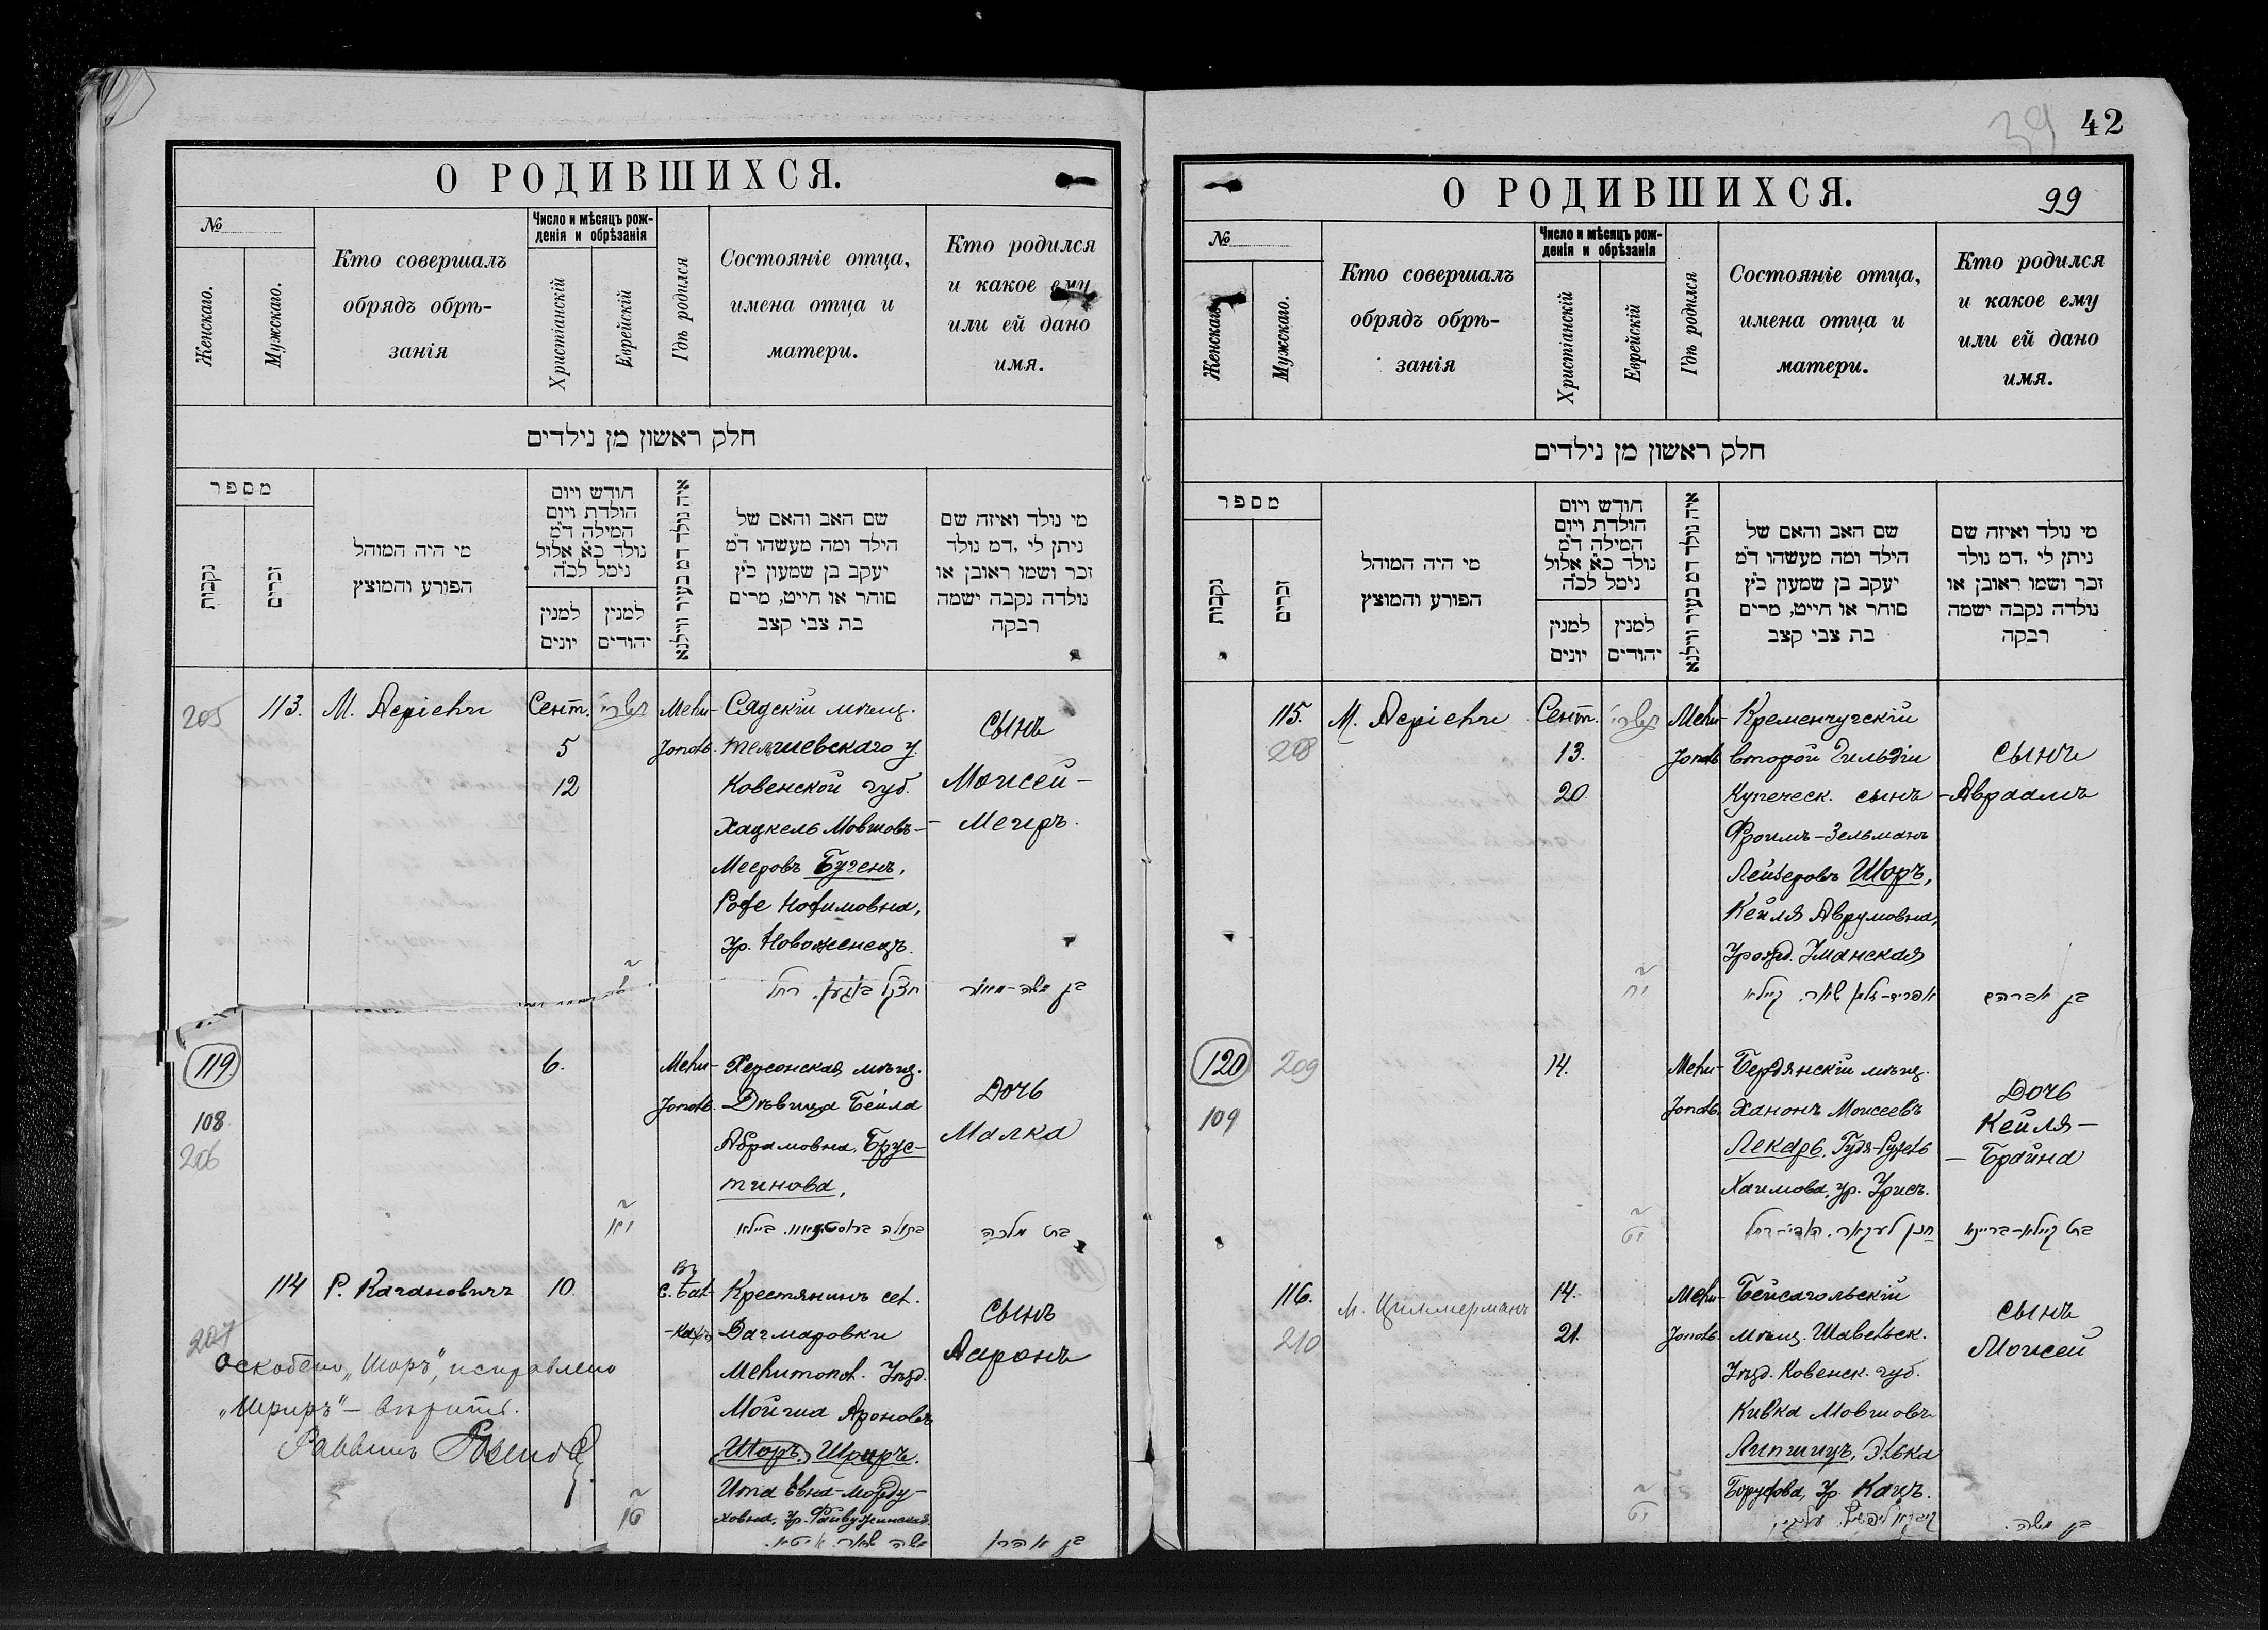 О РОДИВШИХСЯ.
№
Женскаго.
Мужскаго.
Кто совершалъ
обрядъ обрѣ-
занія
Число и мѣсяцъ рож-
денія и обрѣзанія
Христіанскій
Еврейскій
Гдѣ родился
Состояніе отца,
имена отца и
матери.
Кто родился
и какое ему
или ей дано
имя.
חלק ראשון מן נילדים
מספר
נקבות
זכרים
מי היה המוהל
הפורע והמוצץ
חודש ויום
הולדת ויום
המילה ד"מ
נולד כ"א אלול
נימל לכ"ה
למנין
יונים
למנין
יהודים
איה נולד דמ בעיר ווילנא
שם האב והאם של
הילד ומה מעשהו ד"מ
יעקב בן שמעון כ"ץ
סוחר או חייט, מרים
בת צבי קצב
מי נולד ואיזה שם
ניתן לי, דמ נולד
זכר ושמו ראובן או
נולדה נקבה ישמה
רבקה
205
113.
М. Асріевъ
Сент.
5
12
תשרי
Мели-
тополь.
Сядскій мѣщ.
Тельшевскаго у.
Ковенской губ.
Хацкель Мовшовъ-
Мееровъ Бугенъ,
Рохе Нохимовна,
ур. Новоженецъ.
сынъ
Моисей-
- Меиръ.
119
108
206
6.
Мели-
тополь.
Херсонская мѣщ.
Дѣвица Бейла
Абрамовна, Брус-
тинова,
Дочь
Малка
בת מלכה
114
207
Р. Кагановичъ
10.
Крестянинъ сел.
Дагмаровки
Мелитопол. Уѣзд.
Мойша Ароновъ
Шоръ. Шриръ.
Ита Евна-Морду-
ховна, ур.
сынъ
Ааронъ
בן אהרן
Оскоблено „Шоръ", исправлено
„Шриръ" – вѣрить.
Раввинъ
42
39
О РОДИВШИХСЯ.
99
№
Женскаго.
Мужскаго.
Кто совершалъ
обрядъ обрѣ-
занія
Число и мѣсяцъ рож-
денія и обрѣзанія
Христіанскій
Еврейскій
Гдѣ родился
Состояніе отца,
имена отца и
матери.
Кто родился
и какое ему
или ей дано
имя.
חלק ראשון מן נילדים
מספר
נקבות
זכרים
מי היה המוהל
הפורע והמוצץ
חודש ויום
הולדת ויום
המילה ד"מ
נולד כ"א אלול
נימל לכ"ה
למנין
יונים
למנין
יהודים
איה נולד דמ בעיר ווילנא
שם האב והאם של
הילד ומה מעשהו ד"מ
יעקב בן שמעון כ"ץ
סוחר או חייט, מרים
בת צבי קצב
מי נולד ואיזה שם
ניתן לי, דמ נולד
זכר ושמו ראובן או
נולדה נקבה ישמה
רבקה
115.
208
М. Асріевъ
Сент.
13.
20
תשרי
Мели-
тополь
Кременчугскій
второй Гильдіи
Купеческ. сынъ
Фроимъ-Зельманъ
Лейзеровъ Шоръ,
Кейля Аврумовна,
Урожд. Уманская
сынъ
-Авраамъ
יח
בן אברהם
120
209
109
14.
Мели-
тополь.
Бердянскій мѣщ.
Ханонъ Моисеевъ
Лекарь, Гудя-Рухель
Хаимова, ур. Урисъ.
Дочь
Кейля-
- Брайна
יט
בת קיילא-בריינא
116.
210
М. Циммерманъ
14.
21.
Мели-
тополь.
Бейсагольскій
мѣщ. Шавельск.
Уѣзд. Ковенск. губ.
Кивка Мовшовъ
Липшицъ, Элька
Борухова, Ур. Кацъ.
сынъ
Моисей
יט
בן משה.